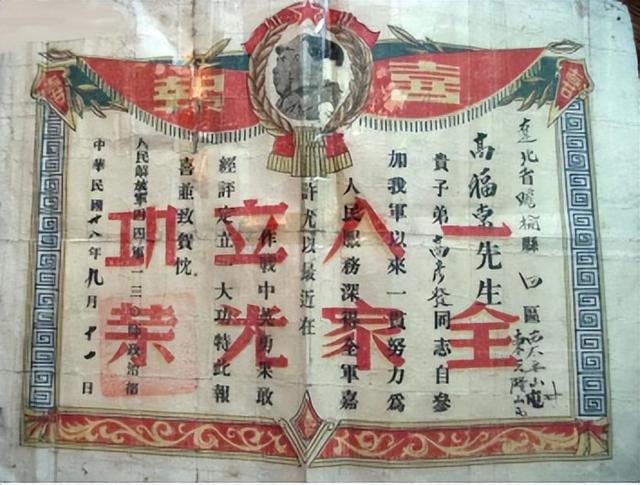 喜報
遼北省瞻榆縣四區
高福東先生
貴子弟高彥發同志自參
加我軍以來一貫努力為
人民服務深得全軍嘉
許尤以最近在
作戰中英勇果敢
經評定立一大功特此報
喜並致賀忱
人民解放軍四四軍一三〇師政治部
中華民國卅八年九月十一日
一人立功
全家光榮